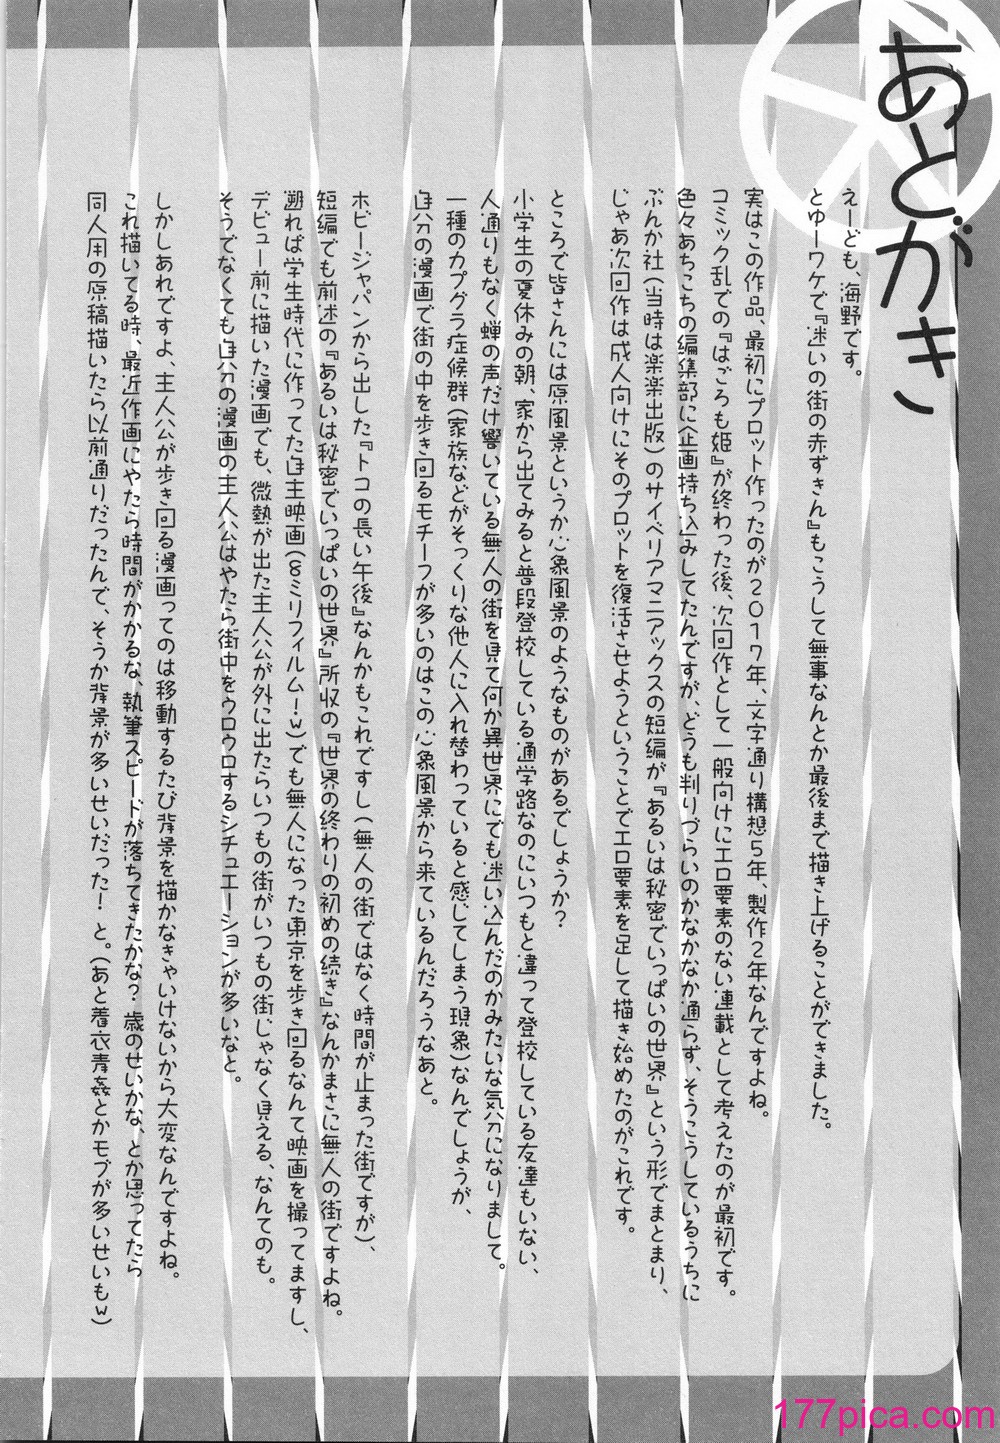 あとがき
えーども、海野です。
とゆーワケで『迷いの街の赤ずきん』もこうして無事なんとか最後まで描き上げることができました。
実はこの作品、最初にプロット作ったのが2017年、文字通り構想5年、製作2年なんですよね。
コミック乱での『はごろも姫』が終わった後、次回作として一般向けにエロ要素のない連載として考えたのが最初です。
色々あちこちの編集部に企画持ち込みしてたんですが、どうも判りづらいのかなかなか通らず、そうこうしているうちに
ぶんか社（当時は楽楽出版）のサイベリアマニアックスの短編が『あるいは秘密でいっぱいの世界』という形でまとまり、
じゃあ次回作は成人向けにそのプロットを復活させようということでエロ要素を足して描き始めたのがこれです。
ところで皆さんには原風景というか心象風景のようなものがあるでしょうか？
小学生の夏休みの朝、家から出てみると普段登校している通学路なのにいつもと違って登校している友達もいない、
人通りもなく蝉の声だけ響いている無人の街を見て何か異世界にでも迷い込んだのかみたいな気分になりまして。
一種のカプグラ症候群（家族などがそっくりな他人に入れ替わっていると感じてしまう現象）なんでしょうが、
自分の漫画で街の中を歩き回るモチーフが多いのはこの心象風景から来ているんだろうなあと。
ホビージャパンから出した『トコの長い午後』なんかもこれですし（無人の街ではなく時間が止まった街ですが）、
短編でも前述の『あるいは秘密でいっぱいの世界』所収の『世界の終わりの初めの続き』なんかまさに無人の街ですよね。
遡れば学生時代に作ってた自主映画（8ミリフィルム！w）でも無人になった東京を歩き回るなんて映画を撮ってますし、
デビュー前に描いた漫画でも、微熱が出た主人公が外に出たらいつもの街がいつもの街じゃなく見える、なんてのも。
そうでなくても自分の漫画の主人公はやたら街中をウロウロするシチュエーションが多いなと。
しかしあれですよ、主人公が歩き回る漫画ってのは移動するたび背景を描かなきゃいけないから大変なんですよね。
これ描いてる時、最近作画にやたら時間がかかるな、執筆スピードが落ちてきたかな？歳のせいかな、とか思ってたら
同人用の原稿描いたら以前通りだったんで、そうか背景が多いせいだった！と。（あと着衣青姦とかモブが多いせいもw）
177pica.com